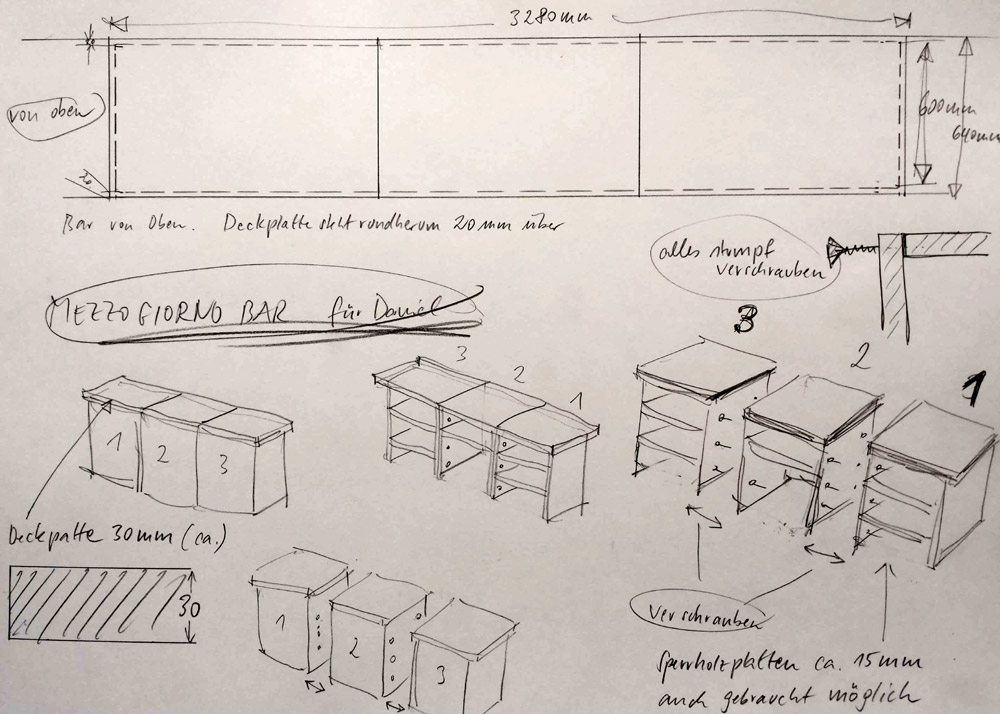 3280mm
von oben
600mm
640mm
20
Bar von Oben. Deckplatte steht rundherum 20mm über
alles stumpf
verschrauben
MEZZOGIORNO BAR für Daniel
3
2
1
3
2
1
1
2
3
Deckplatte 30mm (ca.)
30
1
2
3
Verschrauben
Sperrholzplatten ca. 15mm
auch gebraucht möglich